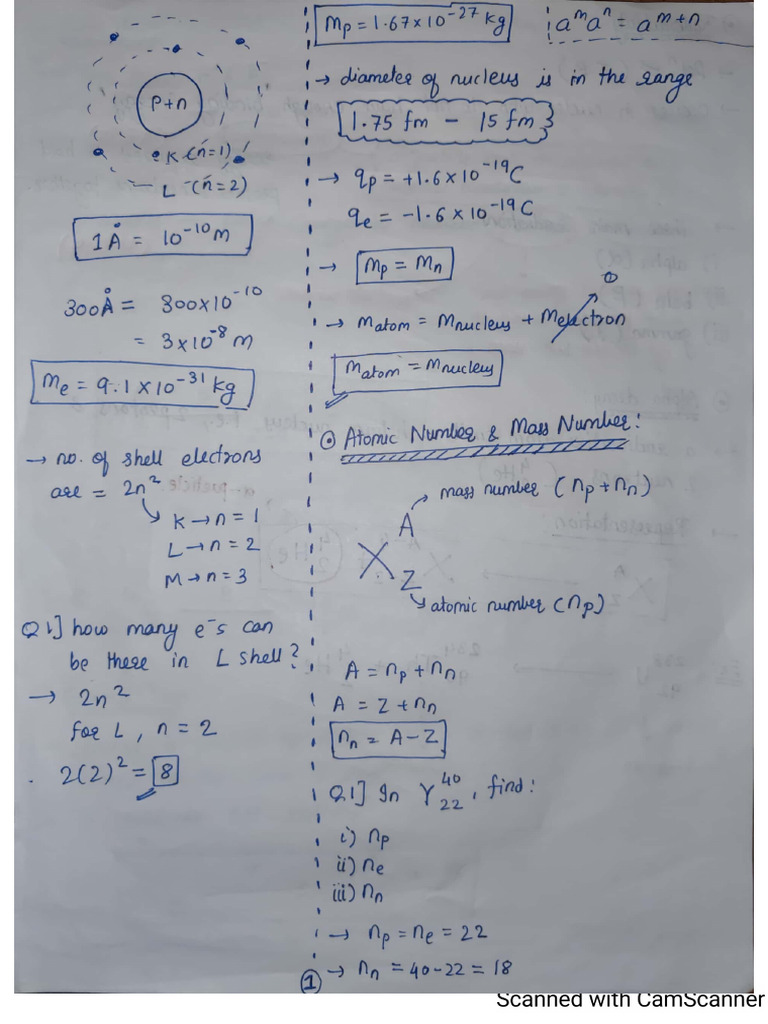 P+n
K (n=1)
L (n=2)
1Å = 10⁻¹⁰ m
300Å = 300×10⁻¹⁰
= 3×10⁻⁸ m
Me = 9.1 × 10⁻³¹ kg
→ no. of shell electrons
are = 2n²
K → n = 1
L → n = 2
M → n = 3
Q1] how many e⁻s can
be there in L shell?
→ 2n²
for L, n = 2
2(2)² = 8
Mp = 1.67×10⁻²⁷ kg
aᵐaⁿ = aᵐ⁺ⁿ
→ diameter of nucleus is in the range
1.75 fm – 15 fm
→ qp = +1.6×10⁻¹⁹C
qe = -1.6×10⁻¹⁹C
→ Mp = Mn
0
→ Matom = Mnucleus + Melectron
Matom = Mnucleus
Atomic Number & Mass Number:
mass number (np + nn)
A
X
Z
atomic number (np)
A = np + nn
A = Z + nn
nn = A - Z
Q1] In Y₂₂⁴⁰, find:
i) np
ii) ne
iii) nn
→ np = ne = 22
→ nn = 40-22 = 18
1
Scanned with CamScanner